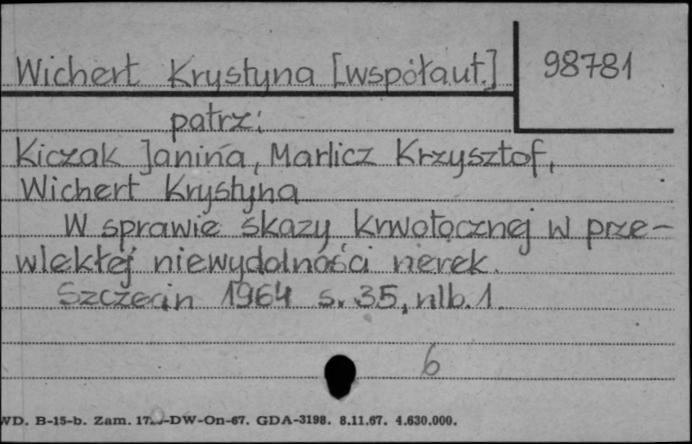 Wichert Krystyna [współaut.]
98781
patrz:
Kiczak Janina, Marlicz Krzysztof,
Wichert Krystyna
W sprawie skazy krwotocznej w prze-
wlekłej niewydolności nerek.
Szczecin 1964 s. 35, nlb. 1.
6
WD. B-15-b. Zam. -DW-On-67. GDA-3198. 8.11.67. 4.630.000.